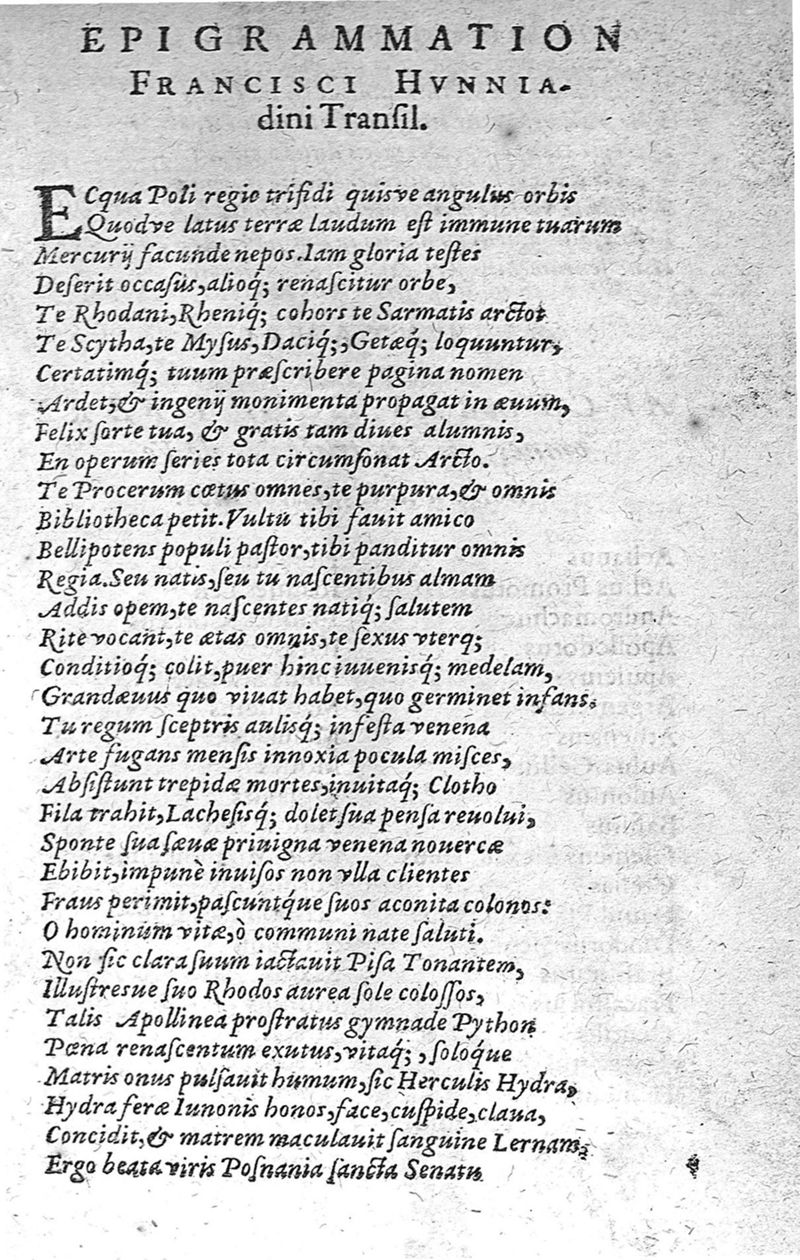 EPIGRAMMATION
FRANCISCI HVNNIA-
dini Tranſil.
ECqua Poli regio trifidi quisve angulus orbis
Quodve latus terræ laudum eſt immune tuarum
Mercurij facunde nepos. Iam gloria teſtes
Deſerit occaſus, alioq́; renaſcitur orbe,
Te Rhodani, Rheniq́; cohors te Sarmatis arctot
Te Scytha, te Myſus, Daciq́;, Getæq́; loquuntur,
Certatimq́; tuum præſcribere pagina nomen
Ardet, & ingenij monimenta propagat in æuum,
Felix ſorte tua, & gratis tam diues alumnis,
En operum ſeries tota circumſonat Arcto.
Te Procerum cœtus omnes, te purpura, & omnis
Bibliotheca petit. Vultu tibi fauit amico
Bellipotens populi paſtor, tibi panditur omnis
Regia. Seu natis, ſeu tu naſcentibus almam
Addis opem, te naſcentes natiq́; ſalutem
Rite vocant, te ætas omnis, te ſexus vterq;
Conditioq́; colit, puer hinc iuuenisq́; medelam,
Grandæuus quo viuat habet, quo germinet infans.
Tu regum ſceptris aulisq́; infeſta venena
Arte fugans menſis innoxia pocula miſces,
Abſiſtunt trepidæ mortes, inuitaq́; Clotho
Fila trahit, Lacheſisq́; dolet ſua penſa reuolui,
Sponte ſua ſæuæ priuigna venena nouercæ
Ebibit, impunè inuiſos non vlla clientes
Fraus perimit, paſcuntq́ue ſuos aconita colonos:
O hominum vitæ, ò communi nate ſaluti.
Non ſic clara ſuum iactauit Piſa Tonantem,
Illuſtresue ſuo Rhodos aurea ſole coloſſos,
Talis Apollinea proſtratus gymnade Python
Pœna renaſcentum exutus, vitaq́; , ſoloq́ue
Matris onus pulſauit humum, ſic Herculis Hydra,
Hydra feræ Iunonis honos, face, cuſpide, claua,
Concidit, & matrem maculauit ſanguine Lernam;
Ergo beata viris Poſnania ſancta Senatu